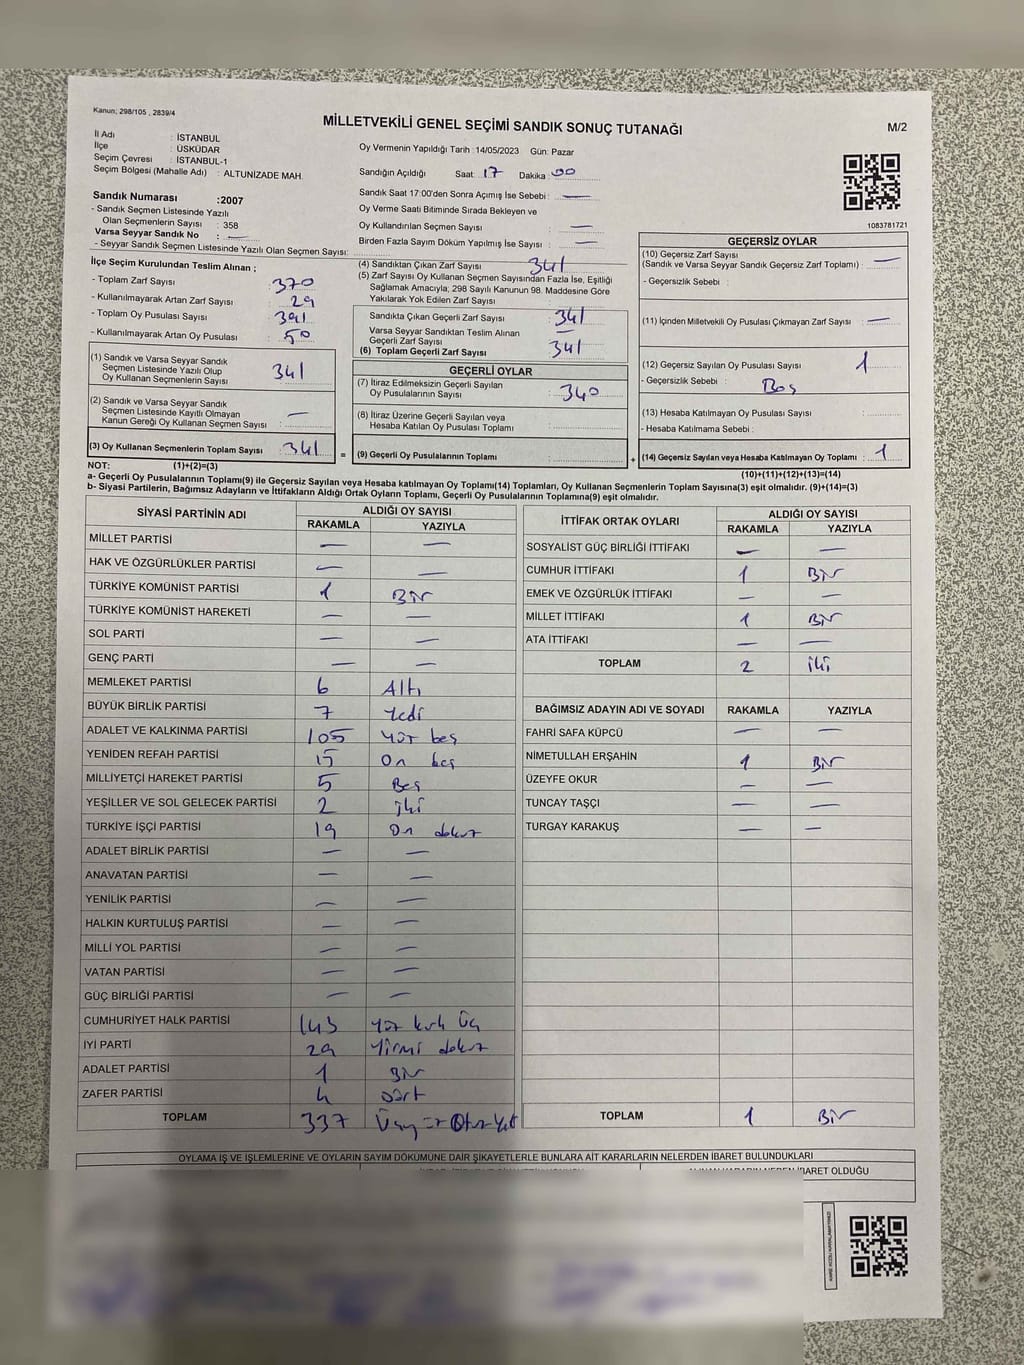 Kanun; 298/105 , 2839/4
MİLLETVEKİLİ GENEL SEÇİMİ SANDIK SONUÇ TUTANAĞI
M/2
İl Adı : İSTANBUL
İlçe : ÜSKÜDAR
Seçim Çevresi : İSTANBUL-1
Seçim Bölgesi (Mahalle Adı) : ALTUNİZADE MAH.
Sandık Numarası :2007
- Sandık Seçmen Listesinde Yazılı
Olan Seçmenlerin Sayısı : 358
Varsa Seyyar Sandık No : —
- Seyyar Sandık Seçmen Listesinde Yazılı Olan Seçmen Sayısı:
Oy Vermenin Yapıldığı Tarih :14/05/2023 Gün: Pazar
Sandığın Açıldığı Saat: 17 Dakika: 00
Sandık Saat 17:00'den Sonra Açımış İse Sebebi : —
Oy Verme Saati Bitiminde Sırada Bekleyen ve
Oy Kullandırılan Seçmen Sayısı : —
Birden Fazla Sayım Döküm Yapılmış İse Sayısı : —
1083781721
İlçe Seçim Kurulundan Teslim Alınan ;
- Toplam Zarf Sayısı : 370
- Kullanılmayarak Artan Zarf Sayısı : 29
- Toplam Oy Pusulası Sayısı : 391
- Kullanılmayarak Artan Oy Pusulası : 50
(1) Sandık ve Varsa Seyyar Sandık
Seçmen Listesinde Yazılı Olup
Oy Kullanan Seçmenlerin Sayısı : 341
(2) Sandık ve Varsa Seyyar Sandık
Seçmen Listesinde Kayıtlı Olmayan
Kanun Gereği Oy Kullanan Seçmen Sayısı : —
(3) Oy Kullanan Seçmenlerin Toplam Sayısı : 341
(4) Sandıktan Çıkan Zarf Sayısı : 341
(5) Zarf Sayısı Oy Kullanan Seçmen Sayısından Fazla İse, Eşitliği
Sağlamak Amacıyla, 298 Sayılı Kanunun 98. Maddesine Göre
Yakılarak Yok Edilen Zarf Sayısı :
Sandıkta Çıkan Geçerli Zarf Sayısı : 341
Varsa Seyyar Sandıktan Teslim Alınan
Geçerli Zarf Sayısı : —
(6) Toplam Geçerli Zarf Sayısı : 341
GEÇERLİ OYLAR
(7) İtiraz Edilmeksizin Geçerli Sayılan
Oy Pusulalarının Sayısı : 340
(8) İtiraz Üzerine Geçerli Sayılan veya
Hesaba Katılan Oy Pusulası Toplamı :
= (9) Geçerli Oy Pusulalarının Toplamı :
GEÇERSİZ OYLAR
(10) Geçersiz Zarf Sayısı
(Sandık ve Varsa Seyyar Sandık Geçersiz Zarf Toplamı) : —
- Geçersizlik Sebebi :
(11) İçinden Milletvekili Oy Pusulası Çıkmayan Zarf Sayısı : —
(12) Geçersiz Sayılan Oy Pusulası Sayısı : 1
- Geçersizlik Sebebi : Boş
(13) Hesaba Katılmayan Oy Pusulası Sayısı :
- Hesaba Katılmama Sebebi :
+ (14) Geçersiz Sayılan veya Hesaba Katılmayan Oy Toplamı : 1
NOT: (1)+(2)=(3)
(10)+(11)+(12)+(13)=(14)
a- Geçerli Oy Pusulalarının Toplamı(9) ile Geçersiz Sayılan veya Hesaba katılmayan Oy Toplamı(14) Toplamları, Oy Kullanan Seçmenlerin Toplam Sayısına(3) eşit olmalıdır. (9)+(14)=(3)
b- Siyasi Partilerin, Bağımsız Adayların ve İttifakların Aldığı Ortak Oyların Toplamı, Geçerli Oy Pusulalarının Toplamına(9) eşit olmalıdır.
SİYASİ PARTİNİN ADI ALDIĞI OY SAYISI
RAKAMLA YAZIYLA
MİLLET PARTİSİ — —
HAK VE ÖZGÜRLÜKLER PARTİSİ — —
TÜRKİYE KOMÜNİST PARTİSİ 1 Bir
TÜRKİYE KOMÜNİST HAREKETİ — —
SOL PARTİ — —
GENÇ PARTİ — —
MEMLEKET PARTİSİ 6 Altı
BÜYÜK BİRLİK PARTİSİ 7 Yedi
ADALET VE KALKINMA PARTİSİ 105 Yüz beş
YENİDEN REFAH PARTİSİ 15 On beş
MİLLİYETÇİ HAREKET PARTİSİ 5 Beş
YEŞİLLER VE SOL GELECEK PARTİSİ 2 iki
TÜRKİYE İŞÇİ PARTİSİ 19 On dokuz
ADALET BİRLİK PARTİSİ — —
ANAVATAN PARTİSİ — —
YENİLİK PARTİSİ — —
HALKIN KURTULUŞ PARTİSİ — —
MİLLİ YOL PARTİSİ — —
VATAN PARTİSİ — —
GÜÇ BİRLİĞİ PARTİSİ — —
CUMHURİYET HALK PARTİSİ 143 Yüz kırk Üç
İYİ PARTİ 29 Yirmi dokuz
ADALET PARTİSİ 1 Bir
ZAFER PARTİSİ 4 Dört
TOPLAM 337 Üçyüz Otuz Yedi
İTTİFAK ORTAK OYLARI ALDIĞI OY SAYISI
RAKAMLA YAZIYLA
SOSYALİST GÜÇ BİRLİĞİ İTTİFAKI — —
CUMHUR İTTİFAKI 1 Bir
EMEK VE ÖZGÜRLÜK İTTİFAKI — —
MİLLET İTTİFAKI 1 Bir
ATA İTTİFAKI — —
TOPLAM 2 iki
BAĞIMSIZ ADAYIN ADI VE SOYADI RAKAMLA YAZIYLA
FAHRİ SAFA KÜPCÜ — —
NİMETULLAH ERŞAHİN 1 Bir
ÜZEYFE OKUR — —
TUNCAY TAŞÇI — —
TURGAY KARAKUŞ — —
TOPLAM 1 Bir
OYLAMA İŞ VE İŞLEMLERİNE VE OYLARIN SAYIM DÖKÜMÜNE DAİR ŞİKAYETLERLE BUNLARA AİT KARARLARIN NELERDEN İBARET BULUNDUKLARI
ALINAN KARARIN NEDEN İBARET OLDUĞU